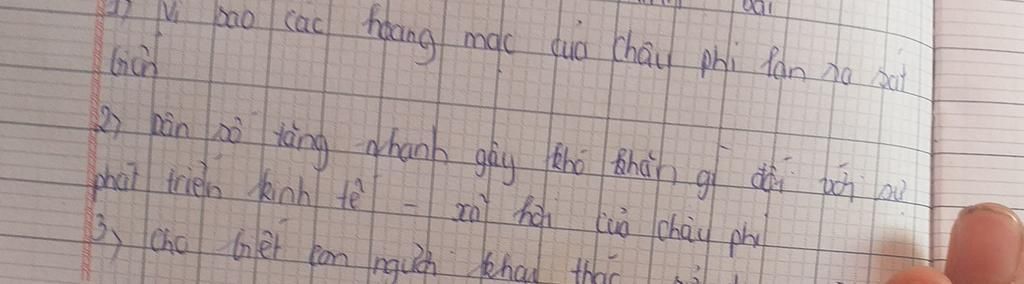 1) Vì sao các hoang mạc của châu phi lan ra sát
biển
2) Dân số tăng nhanh gây khó khăn gì đối với sự
phát triển kinh tế - xã hội của châu phi
3) cho biết con người khai thác